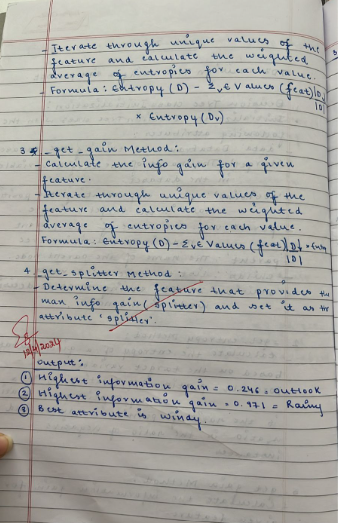 - Iterate through unique values of the
feature and calculate the weighted
average of entropies for each value.
- Formula: Entropy (D) - Σv∈ Values (feat) |Dv|/|D|
× Entropy (Dv)
3. - get - gain Method:
- Calculate the info gain for a given
feature.
- Iterate through unique values of the
feature and calculate the weighted
average of entropies for each value.
Formula: Entropy (D) - Σv∈ Values (feat)
|D|
4. get_splitter Method:
- Determine the feature that provides the
man info gain (splitter) and set it as the
attribute 'splitter'.
Output:
① Highest information gain = 0.246 = outlook
② Highest information gain = 0.971 = Rainy
③ Best attribute is windy.